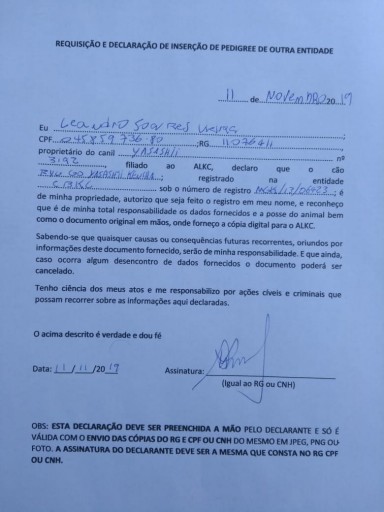 REQUISIÇÃO E DECLARAÇÃO DE INSERÇÃO DE PEDIGREE DE OUTRA ENTIDADE
11 de Novembro 2019
Eu Leandro Soares ;
CPF ;RG
proprietário do canil YASASHII nº
3192, filiado ao ALKC, declaro que o cão
registrado na entidade
CMKC sob o número de registro ; é
de minha propriedade, autorizo que seja feito o registro em meu nome, e reconheço
que é de minha total responsabilidade os dados fornecidos e a posse do animal bem
como o documento original em mãos, onde forneço a cópia digital para o ALKC.
Sabendo-se que quaisquer causas ou consequências futuras recorrentes, oriundos por
informações deste documento fornecido, serão de minha responsabilidade. E que ainda,
caso ocorra algum desencontro de dados fornecidos o documento poderá ser
cancelado.
Tenho ciência dos meus atos e me responsabilizo por ações cíveis e criminais que
possam recorrer sobre as informações aqui declaradas.
O acima descrito é verdade e dou fé
Data: 11/11/2019 Assinatura:
(Igual ao RG ou CNH)
OBS: ESTA DECLARAÇÃO DEVE SER PREENCHIDA A MÃO PELO DECLARANTE E SÓ É
VÁLIDA COM O ENVIO DAS CÓPIAS DO RG E CPF OU CNH DO MESMO EM JPEG, PNG OU
FOTO. A ASSINATURA DO DECLARANTE DEVE SER A MESMA QUE CONSTA NO RG CPF
OU CNH.